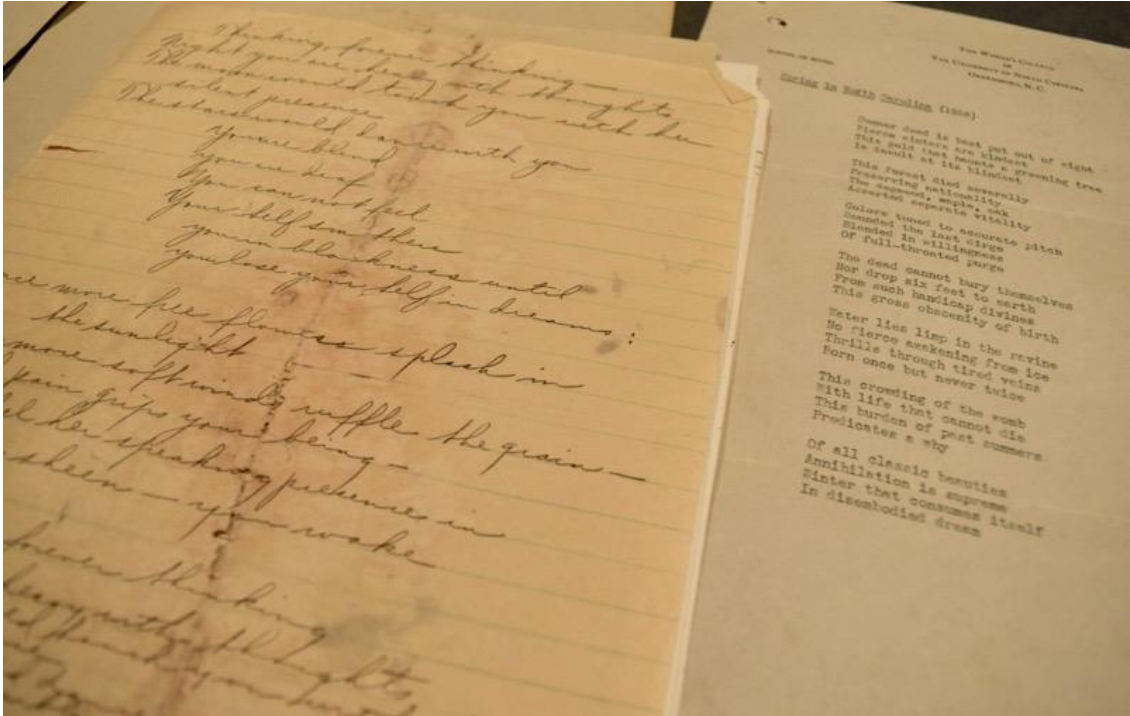 Thinking, forever thinking—
Night you are heavy with thoughts
The moon would touch you with her
silent presence
The stars would dance with you
You are blind
You are deaf
You can not feel
Your self smothers
you in blankness until
you lose your self in dreams:
more free flowers splash in
the sunlight —
more soft winds ruffle the grain—
pain grips your being—
her speaking presence in
sheen — you wake
forever thinking
heavy with thoughts
touch you with
The Woman's College
of
The University of North Carolina
Greensboro, N.C.
School of Music
Spring in North Carolina
Summer dead is best put out of sight
Fierce winters are kindest
This gold that haunts a greening tree
Is insult at its blindest
This forest died severally
Preserving nationality
The dogwood, maple, oak
Asserted separate vitality
Colors tuned to accurate pitch
Sounded the last dirge
Blended in willingness
Of full-throated purge
The dead cannot bury themselves
Nor drop six feet to earth
From such handicap divines
This gross obscenity of birth
Water lies limp in the ravine
No fierce awakening from ice
Thrills through tired veins
Born once but never twice
This crowding of the womb
With life that cannot die
This burden of past summers
Predicates a why
Of all classic beauties
Annihilation is supreme
Winter that consumes itself
In disembodied dream